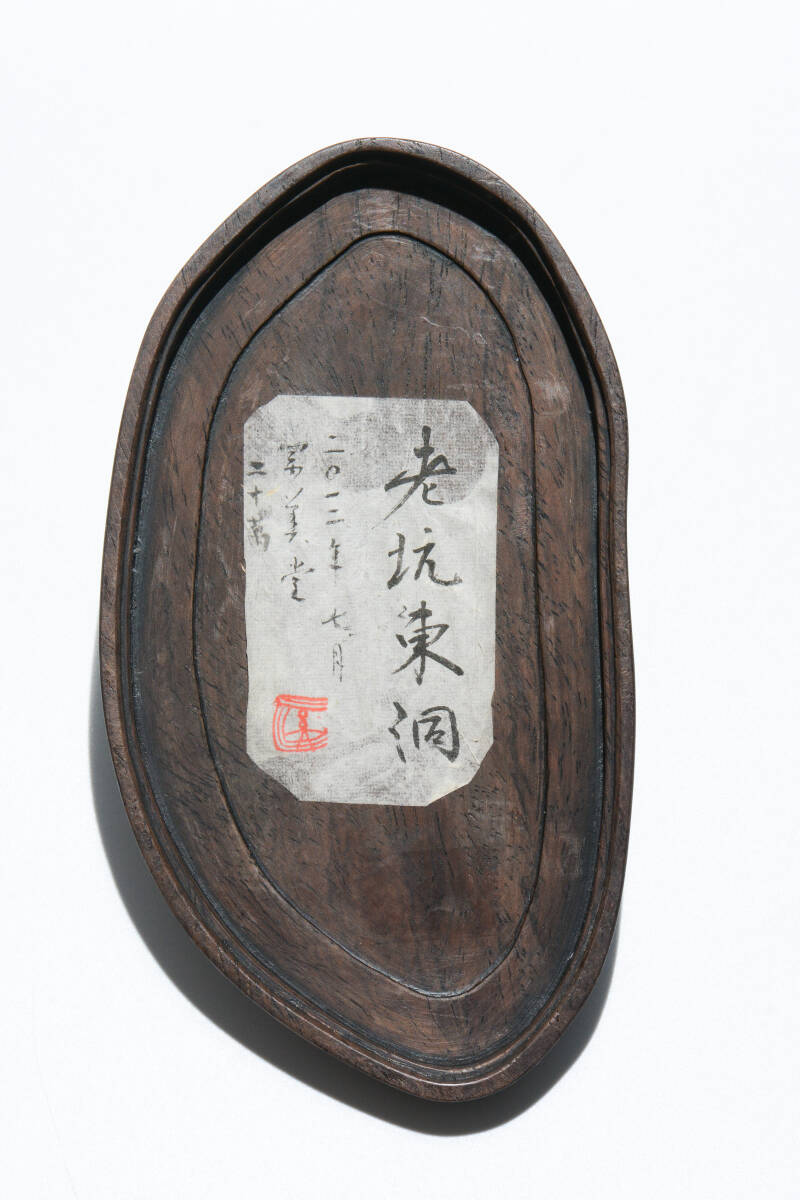 老坑東洞
二〇一二年七月
榮美堂
二十萬